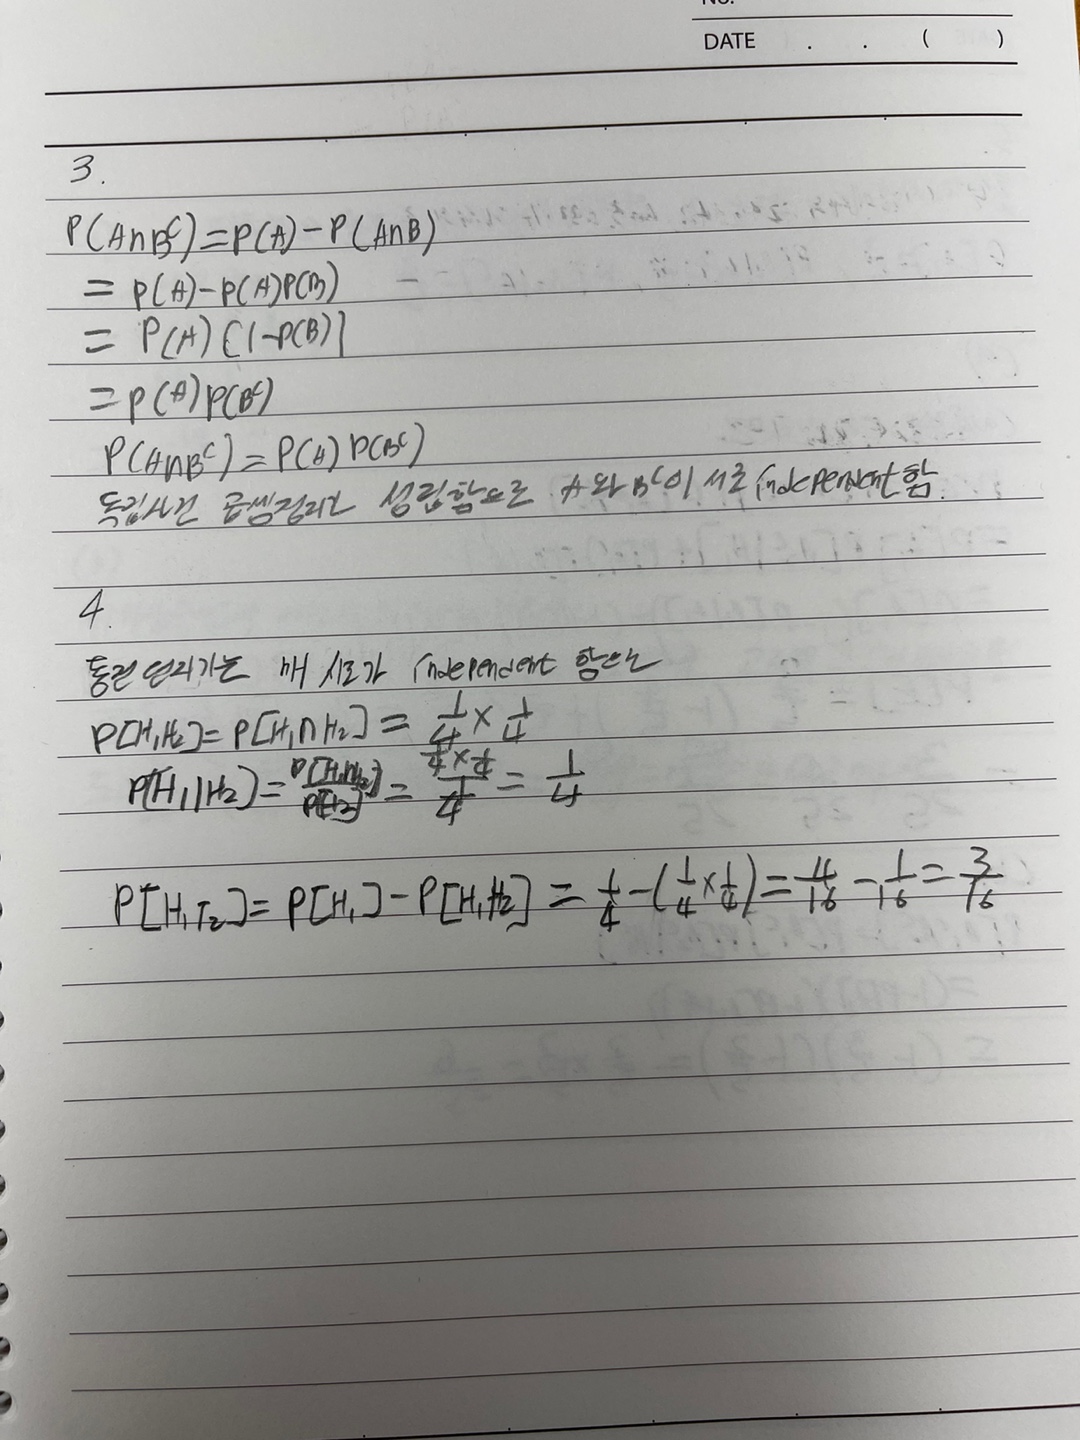 No.
DATE . . ( )
3.
P(A∩B^c)=P(A)-P(A∩B)
= P(A)-P(A)P(B)
= P(A)[1-P(B)]
= P(A)P(B^c)
P(A∩B^c)=P(A)P(B^c)
독립사건 곱셈정리가 성립함으로 A와 B^c이 서로 independent함.
4.
동전 던지기는 매 시도가 independent 함으로
P[H₁H₂]=P[H₁∩H₂]= 1/4 × 1/4
P[H₁|H₂]= P[H₁H₂]/P[H₂] = (1/4 × 1/4)/(1/4) = 1/4
P[H₁T₂]= P[H₁]-P[H₁H₂] = 1/4 - (1/4 × 1/4) = 4/16 - 1/16 = 3/16